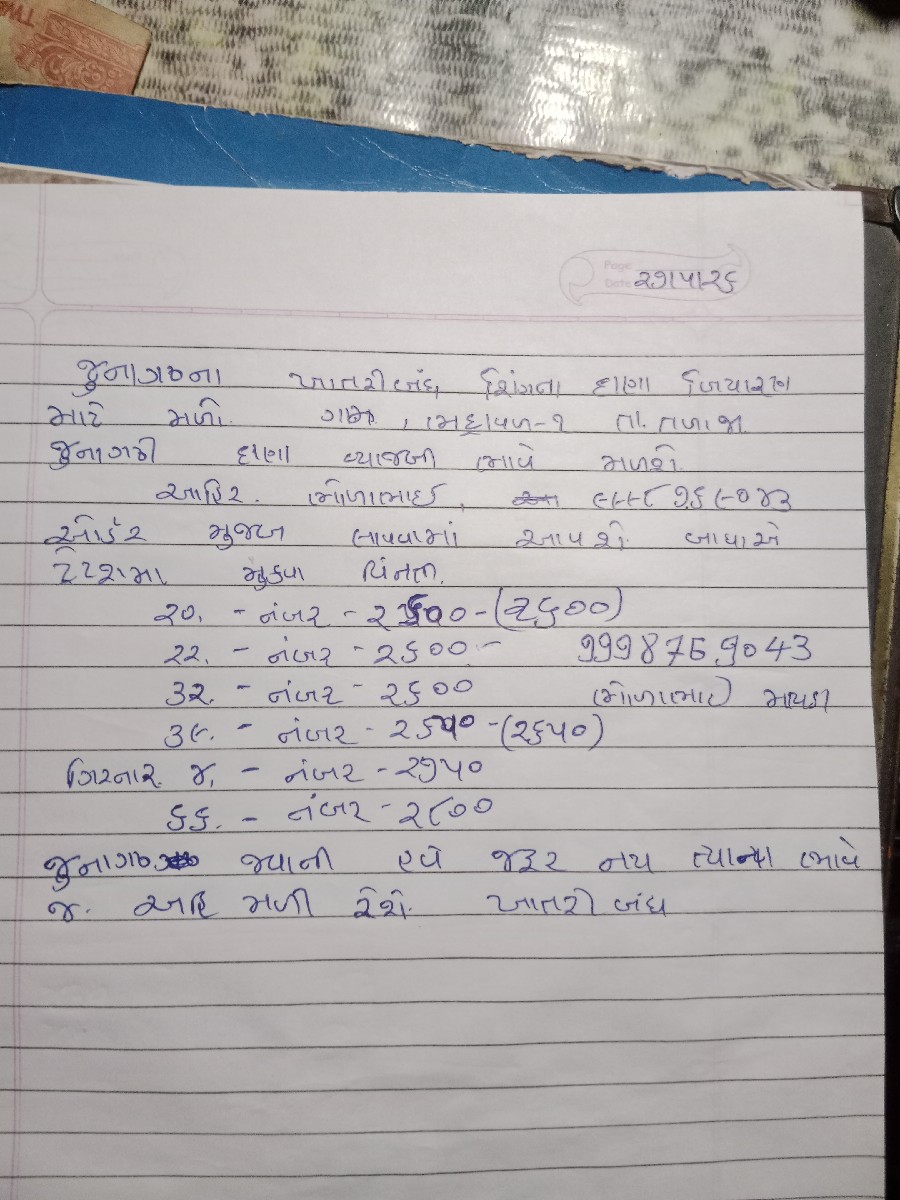 Page
Date ૨૭।૫।૨૬
જુનાગઢના ખાતરીબંધ, શિંગના દાણા બિયારણ
માટે મળી. ગામ, ભદ્રાવળ-૧ તા. તળાજા
જુનાગઢી દાણા વ્યાજબી ભાવે મળશે.
આહિર. ભોળાભાઈ, ૯૯૯૮૭૬૯૦૪૩
ઓર્ડર મુજબ લાવવામાં આવશે. બાધાએ
મુકવા વિનંતી.
૨૦. - નંબર - ૨૬૦૦ - (૨૬૦૦)
૨૨. - નંબર - ૨૬૦૦ - 9998769043
૩૨. - નંબર - ૨૬૦૦ ભોળાભાઈ
૩૯. - નંબર - ૨૬૫૦ - (૨૬૫૦)
ગિરનાર ૪. - નંબર - ૨૭૫૦
૬૬. - નંબર - ૨૮૦૦
જુનાગઢ જવાની હવે જરૂર નય ત્યાના ભાવે
જ. અહિ મળી રેશે. ખાતરીબંધ